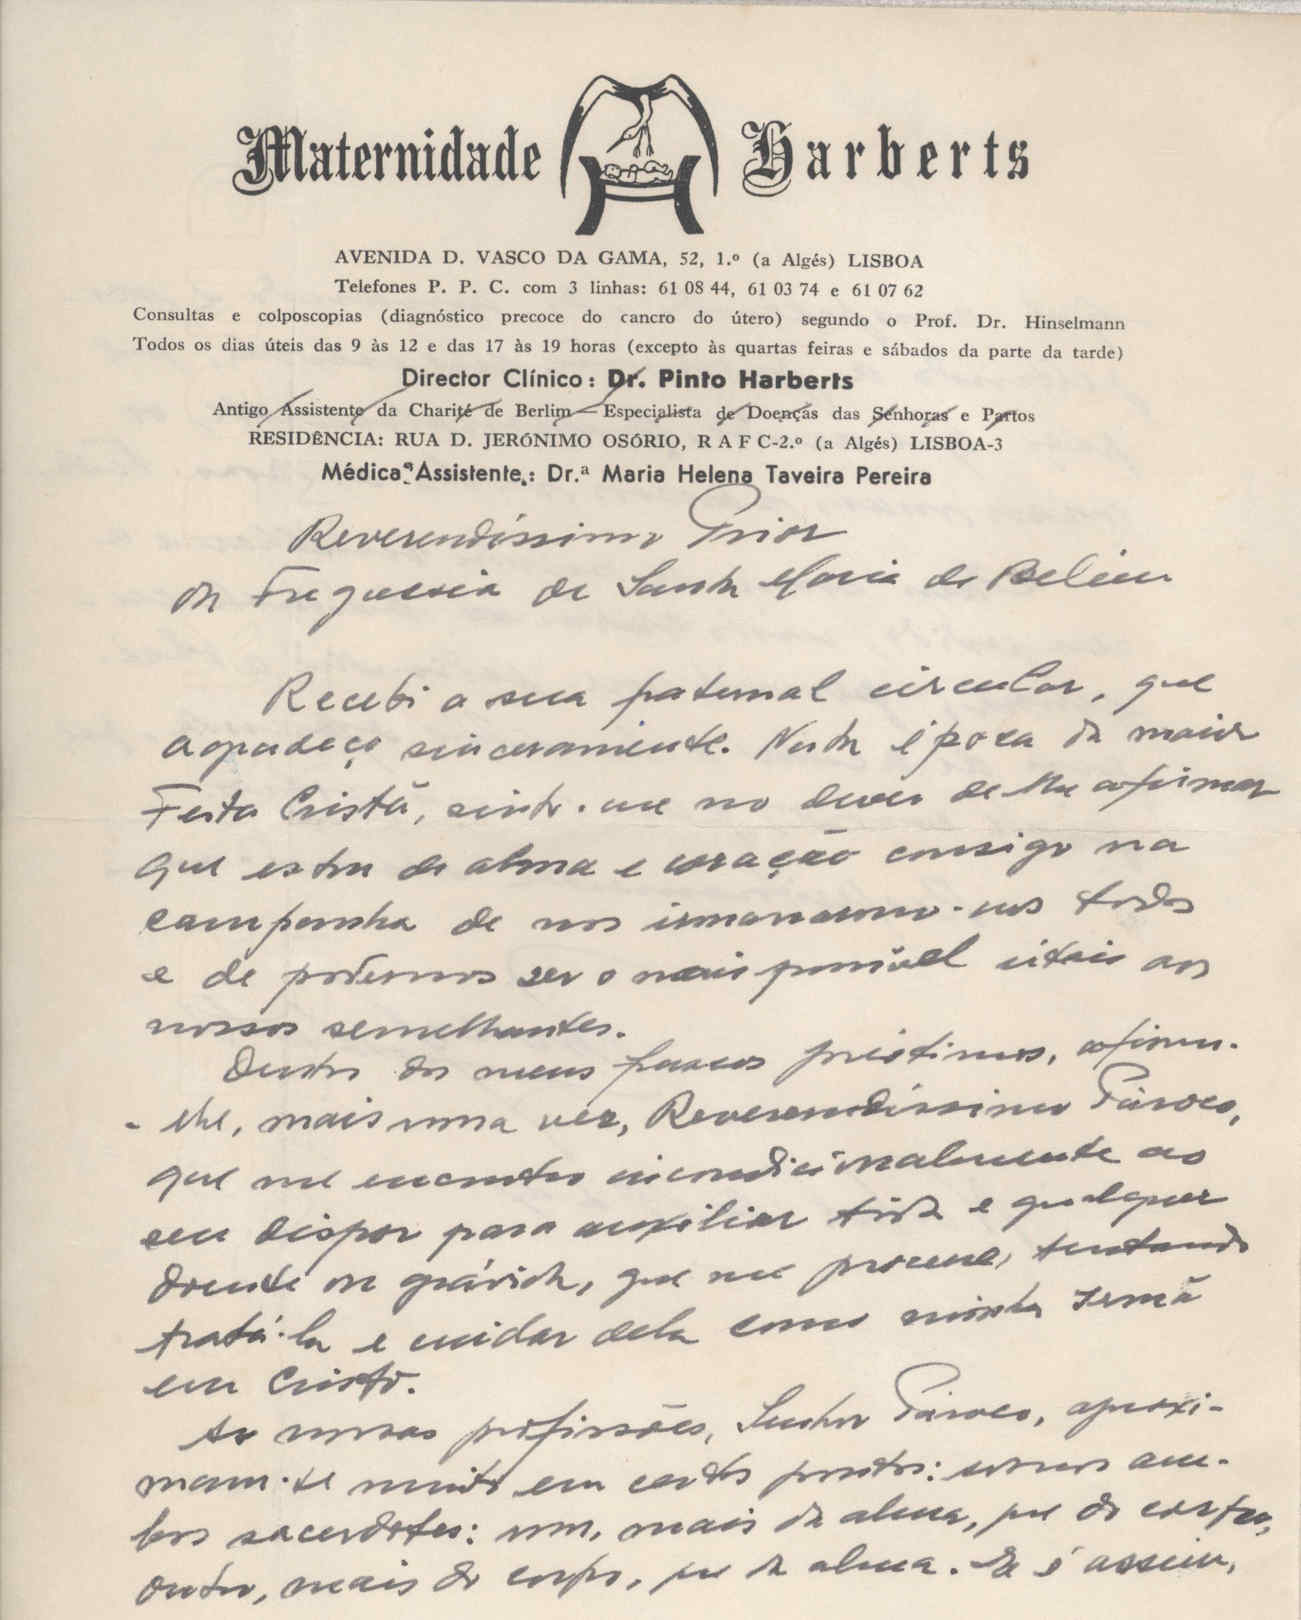 Maternidade Harberts
AVENIDA D. VASCO DA GAMA, 52, 1.º (a Algés) LISBOA
Telefones P. P. C. com 3 linhas: 61 08 44, 61 03 74 e 61 07 62
Consultas e colposcopias (diagnóstico precoce do cancro do útero) segundo o Prof. Dr. Hinselmann
Todos os dias úteis das 9 às 12 e das 17 às 19 horas (excepto às quartas feiras e sábados da parte da tarde)
Director Clínico: Dr. Pinto Harberts
Antigo Assistente da Charité de Berlim — Especialista de Doenças das Senhoras e Partos
RESIDÊNCIA: RUA D. JERÓNIMO OSÓRIO, R A F C-2.º (a Algés) LISBOA-3
Médica Assistente: Dr.ª Maria Helena Taveira Pereira
Reverendíssimo Prior
da Freguesia de Santa Maria de Belém
Recebi a sua paternal circular, que
agradeço sinceramente. Nesta época da maior
Festa Cristã, sinto-me no dever de lhe afirmar
que estou de alma e coração consigo na
campanha de nos irmanarmo-nos todos
e de podermos ser o mais possível úteis aos
nossos semelhantes.
Dentro dos meus parcos préstimos, afirmo-
-lhe, mais uma vez, Reverendíssimo Pároco,
que me encontro incondicionalmente ao
seu dispor para auxiliar toda e qualquer
doente ou grávida, que me procure, tentando
tratá-la e cuidar dela como minha Irmã
em Cristo.
As nossas profissões, Senhor Pároco, aproxi-
mam-se muito em certos pontos: somos am-
bos sacerdotes: um, mais da alma, que do corpo,
outro, mais do corpo, que da alma. Se é assim,